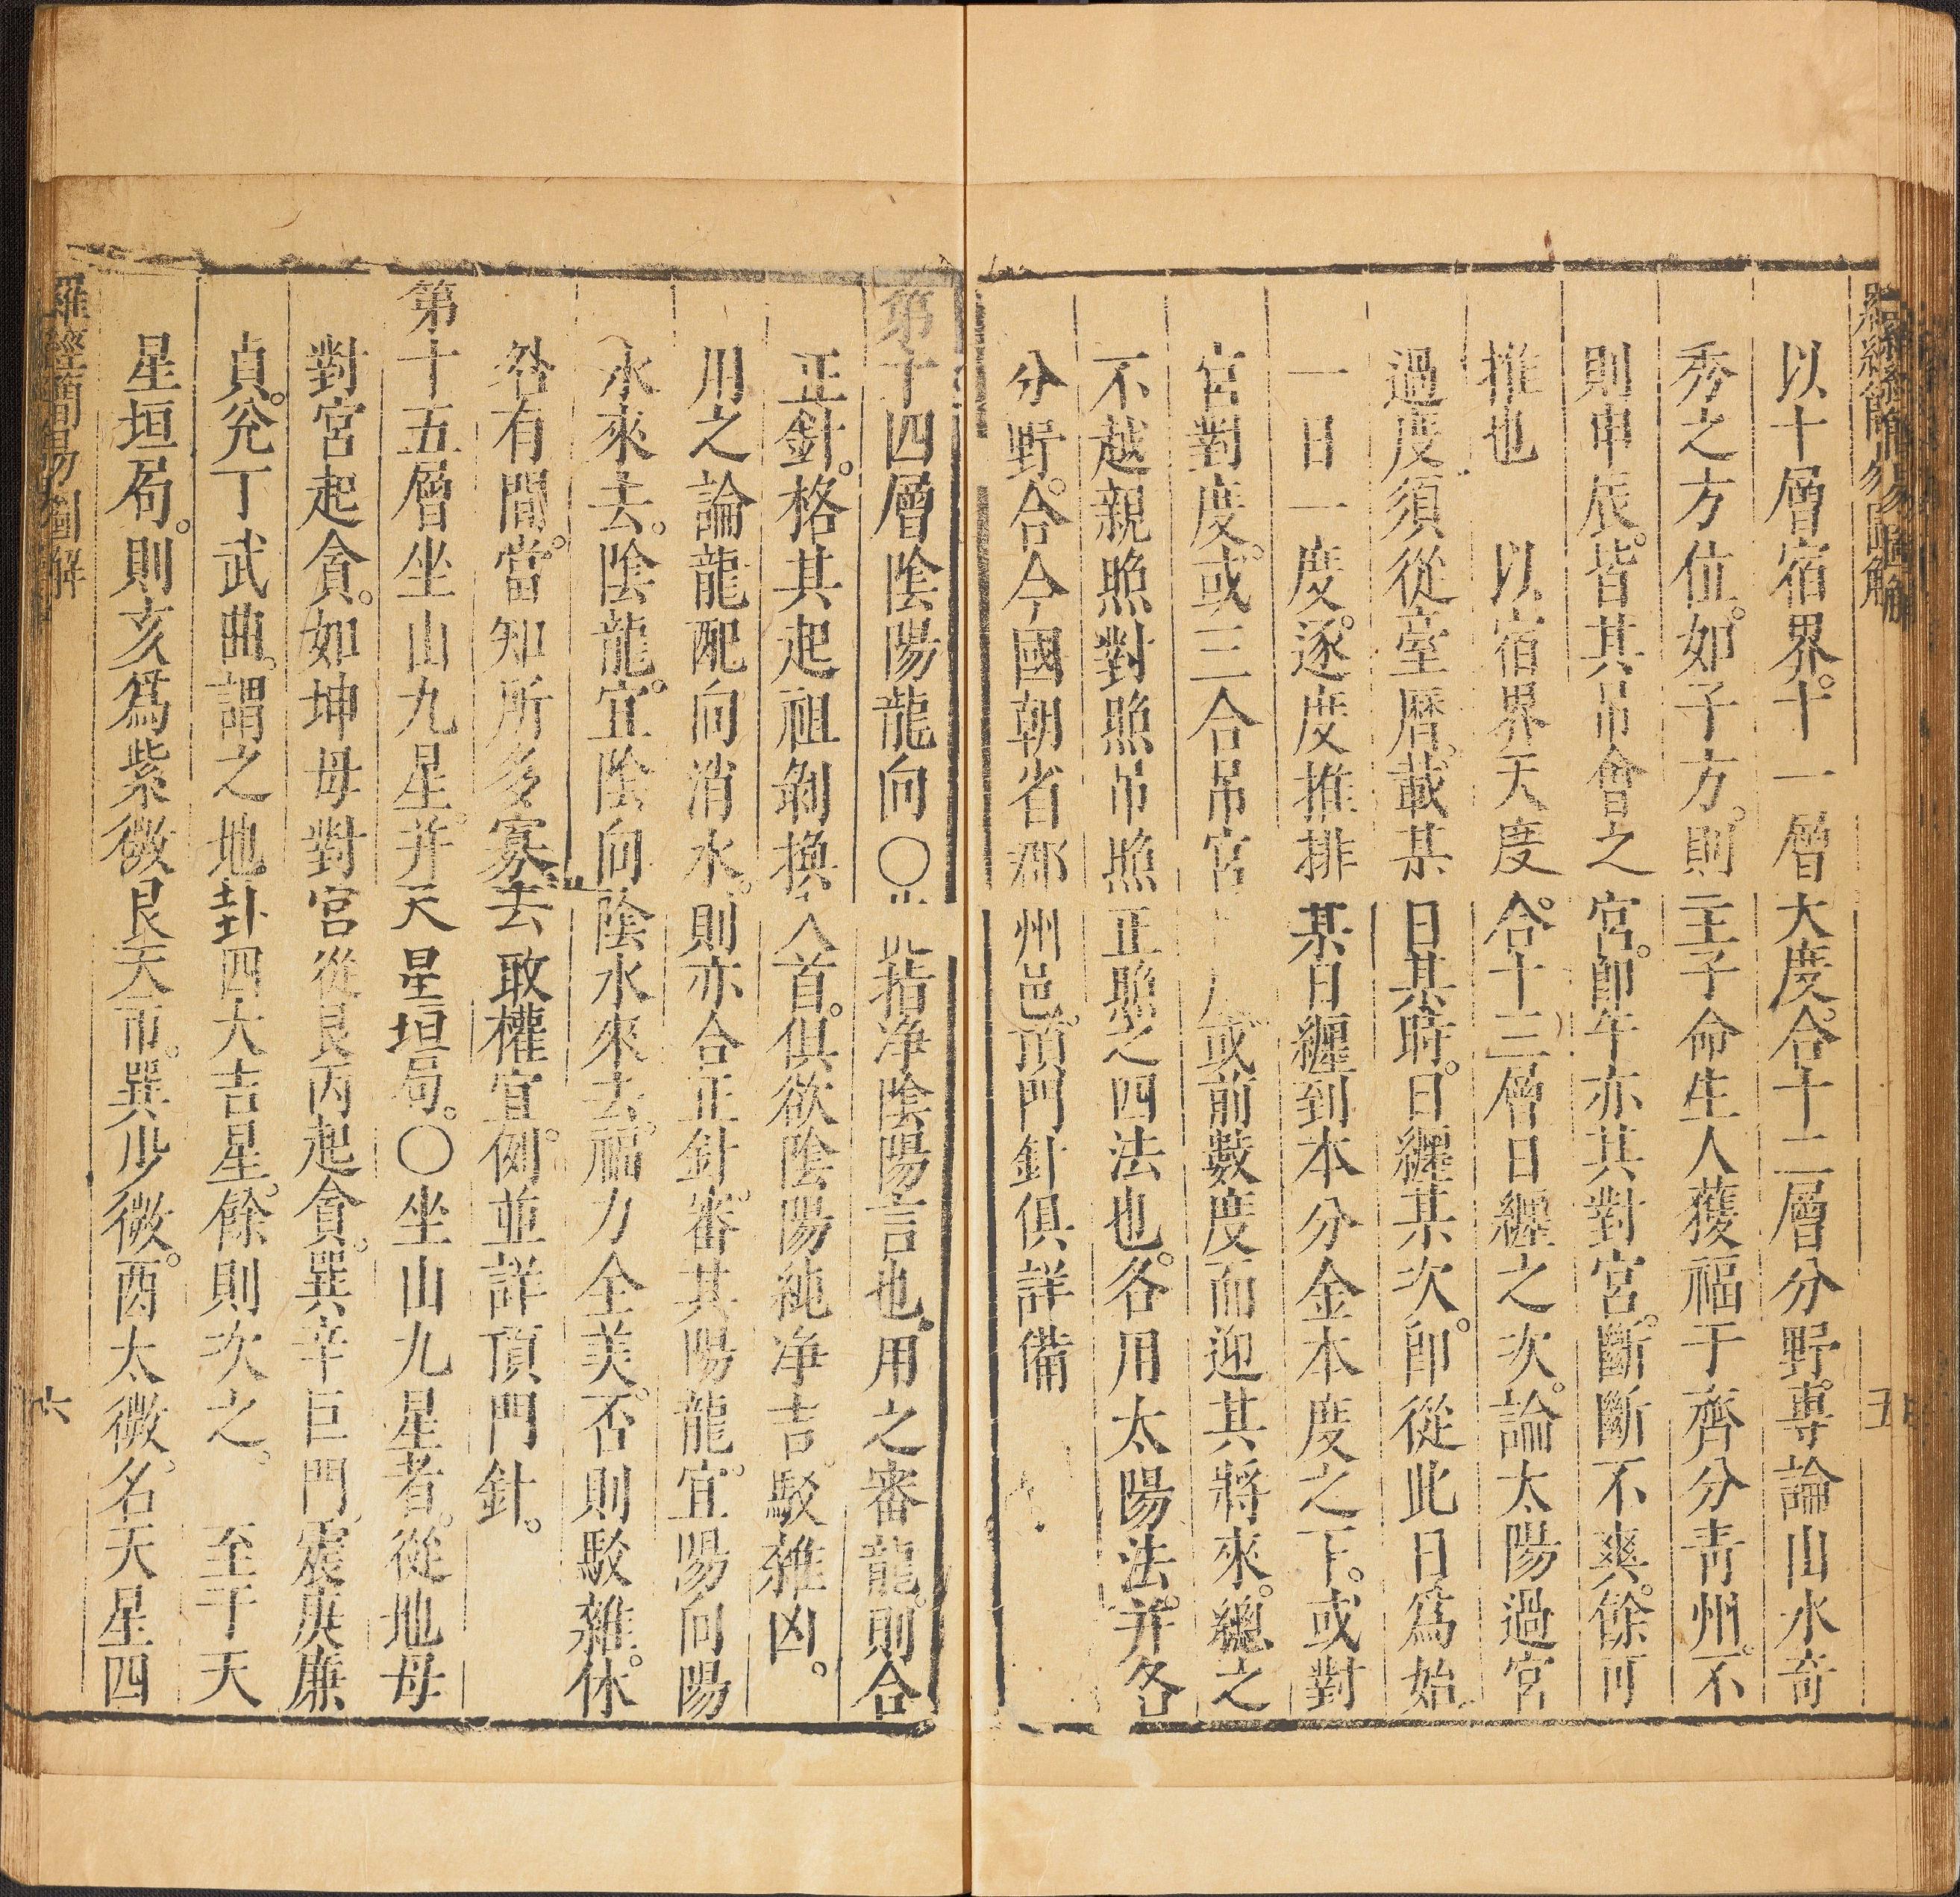 以十層宿界。十一層天度。合十二層分野。專論山水奇
秀之方位。如子方。則主子命生人獲福于齊分青州。不
則申辰。皆其吊會之宮。即午亦其對宮。斷斷不爽。餘可
推也　以宿界天度合十三層日纏之次。論太陽過宮
過度須從臺曆。載某日某時。日纏某次。即從此日為始
一日一度。逐度推排某日纏到本分金本度之下。或對
宮對度。或三合吊宮　或前數度而迎其將來。總之
不越親照對照吊照正照之四法也。各用太陽法。并各
分野。合今國朝省郡州邑。頂門針俱詳備
第十四層陰陽龍向〇此指净陰陽言也。用之審龍。則合
正針。格其起祖剝換入首。俱欲陰陽純净吉。駁雜凶。
用之論龍配向消水。則亦合正針。審其陽龍。宜陽向陽
水來去。陰龍。宜陰向陰水來去。福力全美。否則駁雜。休
咎有間。當知所多寡去取權宜。例並詳頂門針。
第十五層坐山九星。并天星垣局。〇坐山九星者。從地母
對宮起貪。如坤母對宮從艮丙起貪。巽辛巨門。震庚廉
貞。兊丁武曲。謂之地卦四大吉星。餘則次之。　至于天
星垣局。則亥為紫微艮天市。巽少微。酉太微。名天星四
羅經簡易圖解
六
五